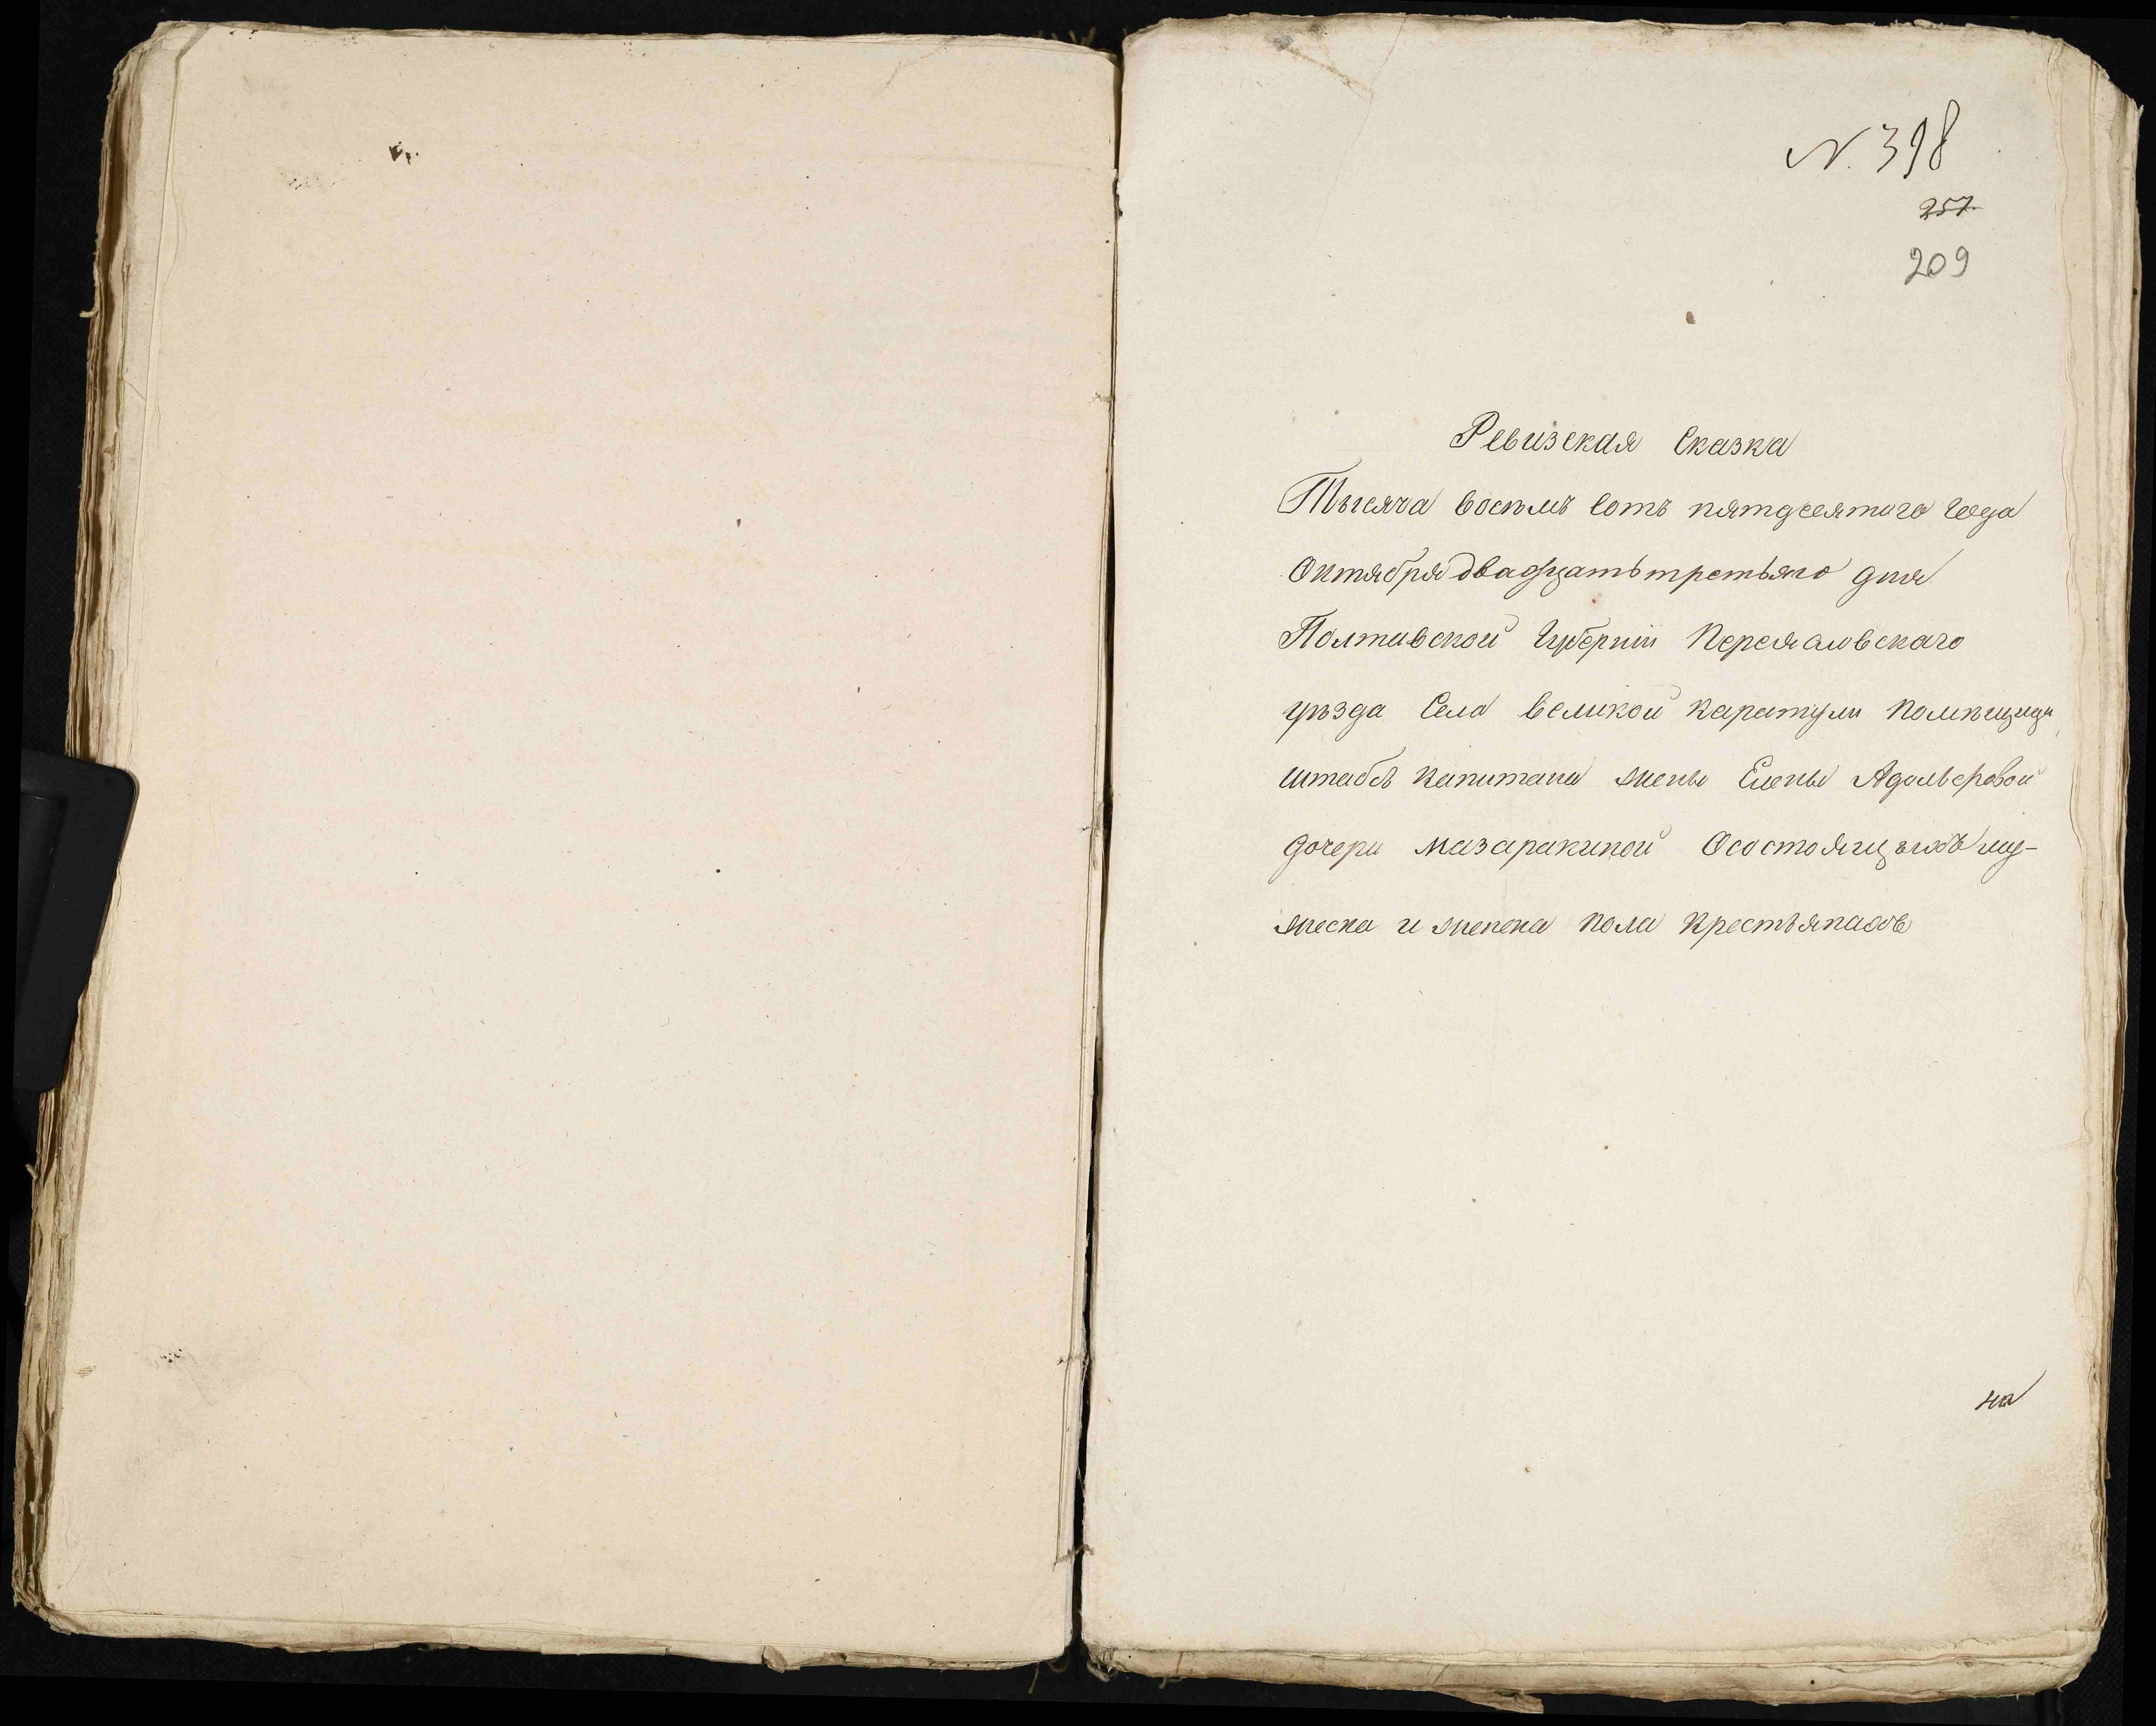 N. 398
257.
209
Ревизская Сказка
Тысяча восемъ сотъ пятдесятого года
Октября двадцать третьяго дня
Полтавской Губернии Переяславского
уѣзда Села великой Каратули помѣщицы
штабсъ капитана жены Елены
дочери Мазаракиной О состоящихъ му-
жеска и женска пола крестьянахъ
на